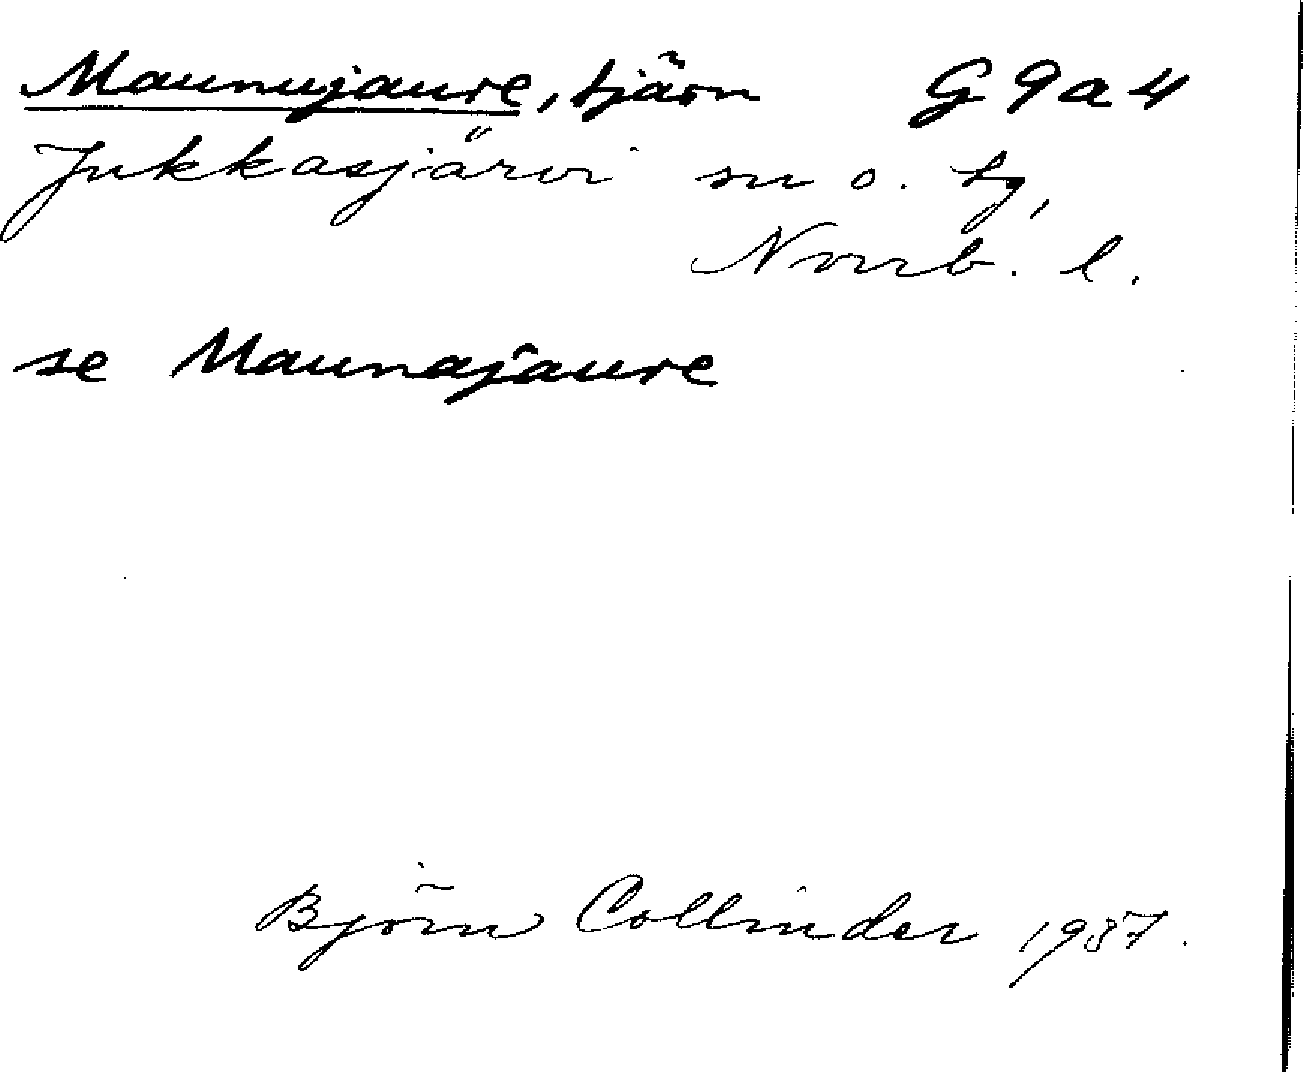 Maunujaure, tjärn G9a4
Jukkasjärvi sn o. tg,
Norrb. l.
se Maunajaure
Björn Collinder 1937.